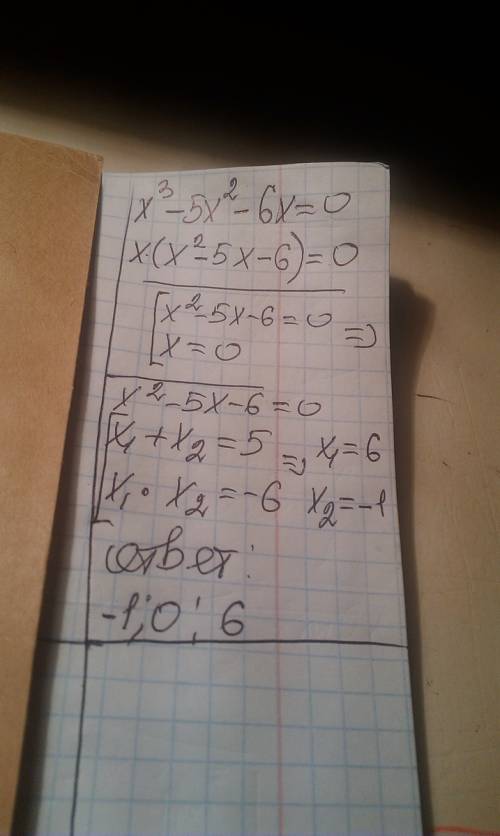 x³-5x²-6x=0
x·(x²-5x-6)=0
[x²-5x-6=0
[x=0 =>
x²-5x-6=0
[x₁+x₂=5 => x₁=6
x₁·x₂=-6 x₂=-1
ответ:
-1;0;6